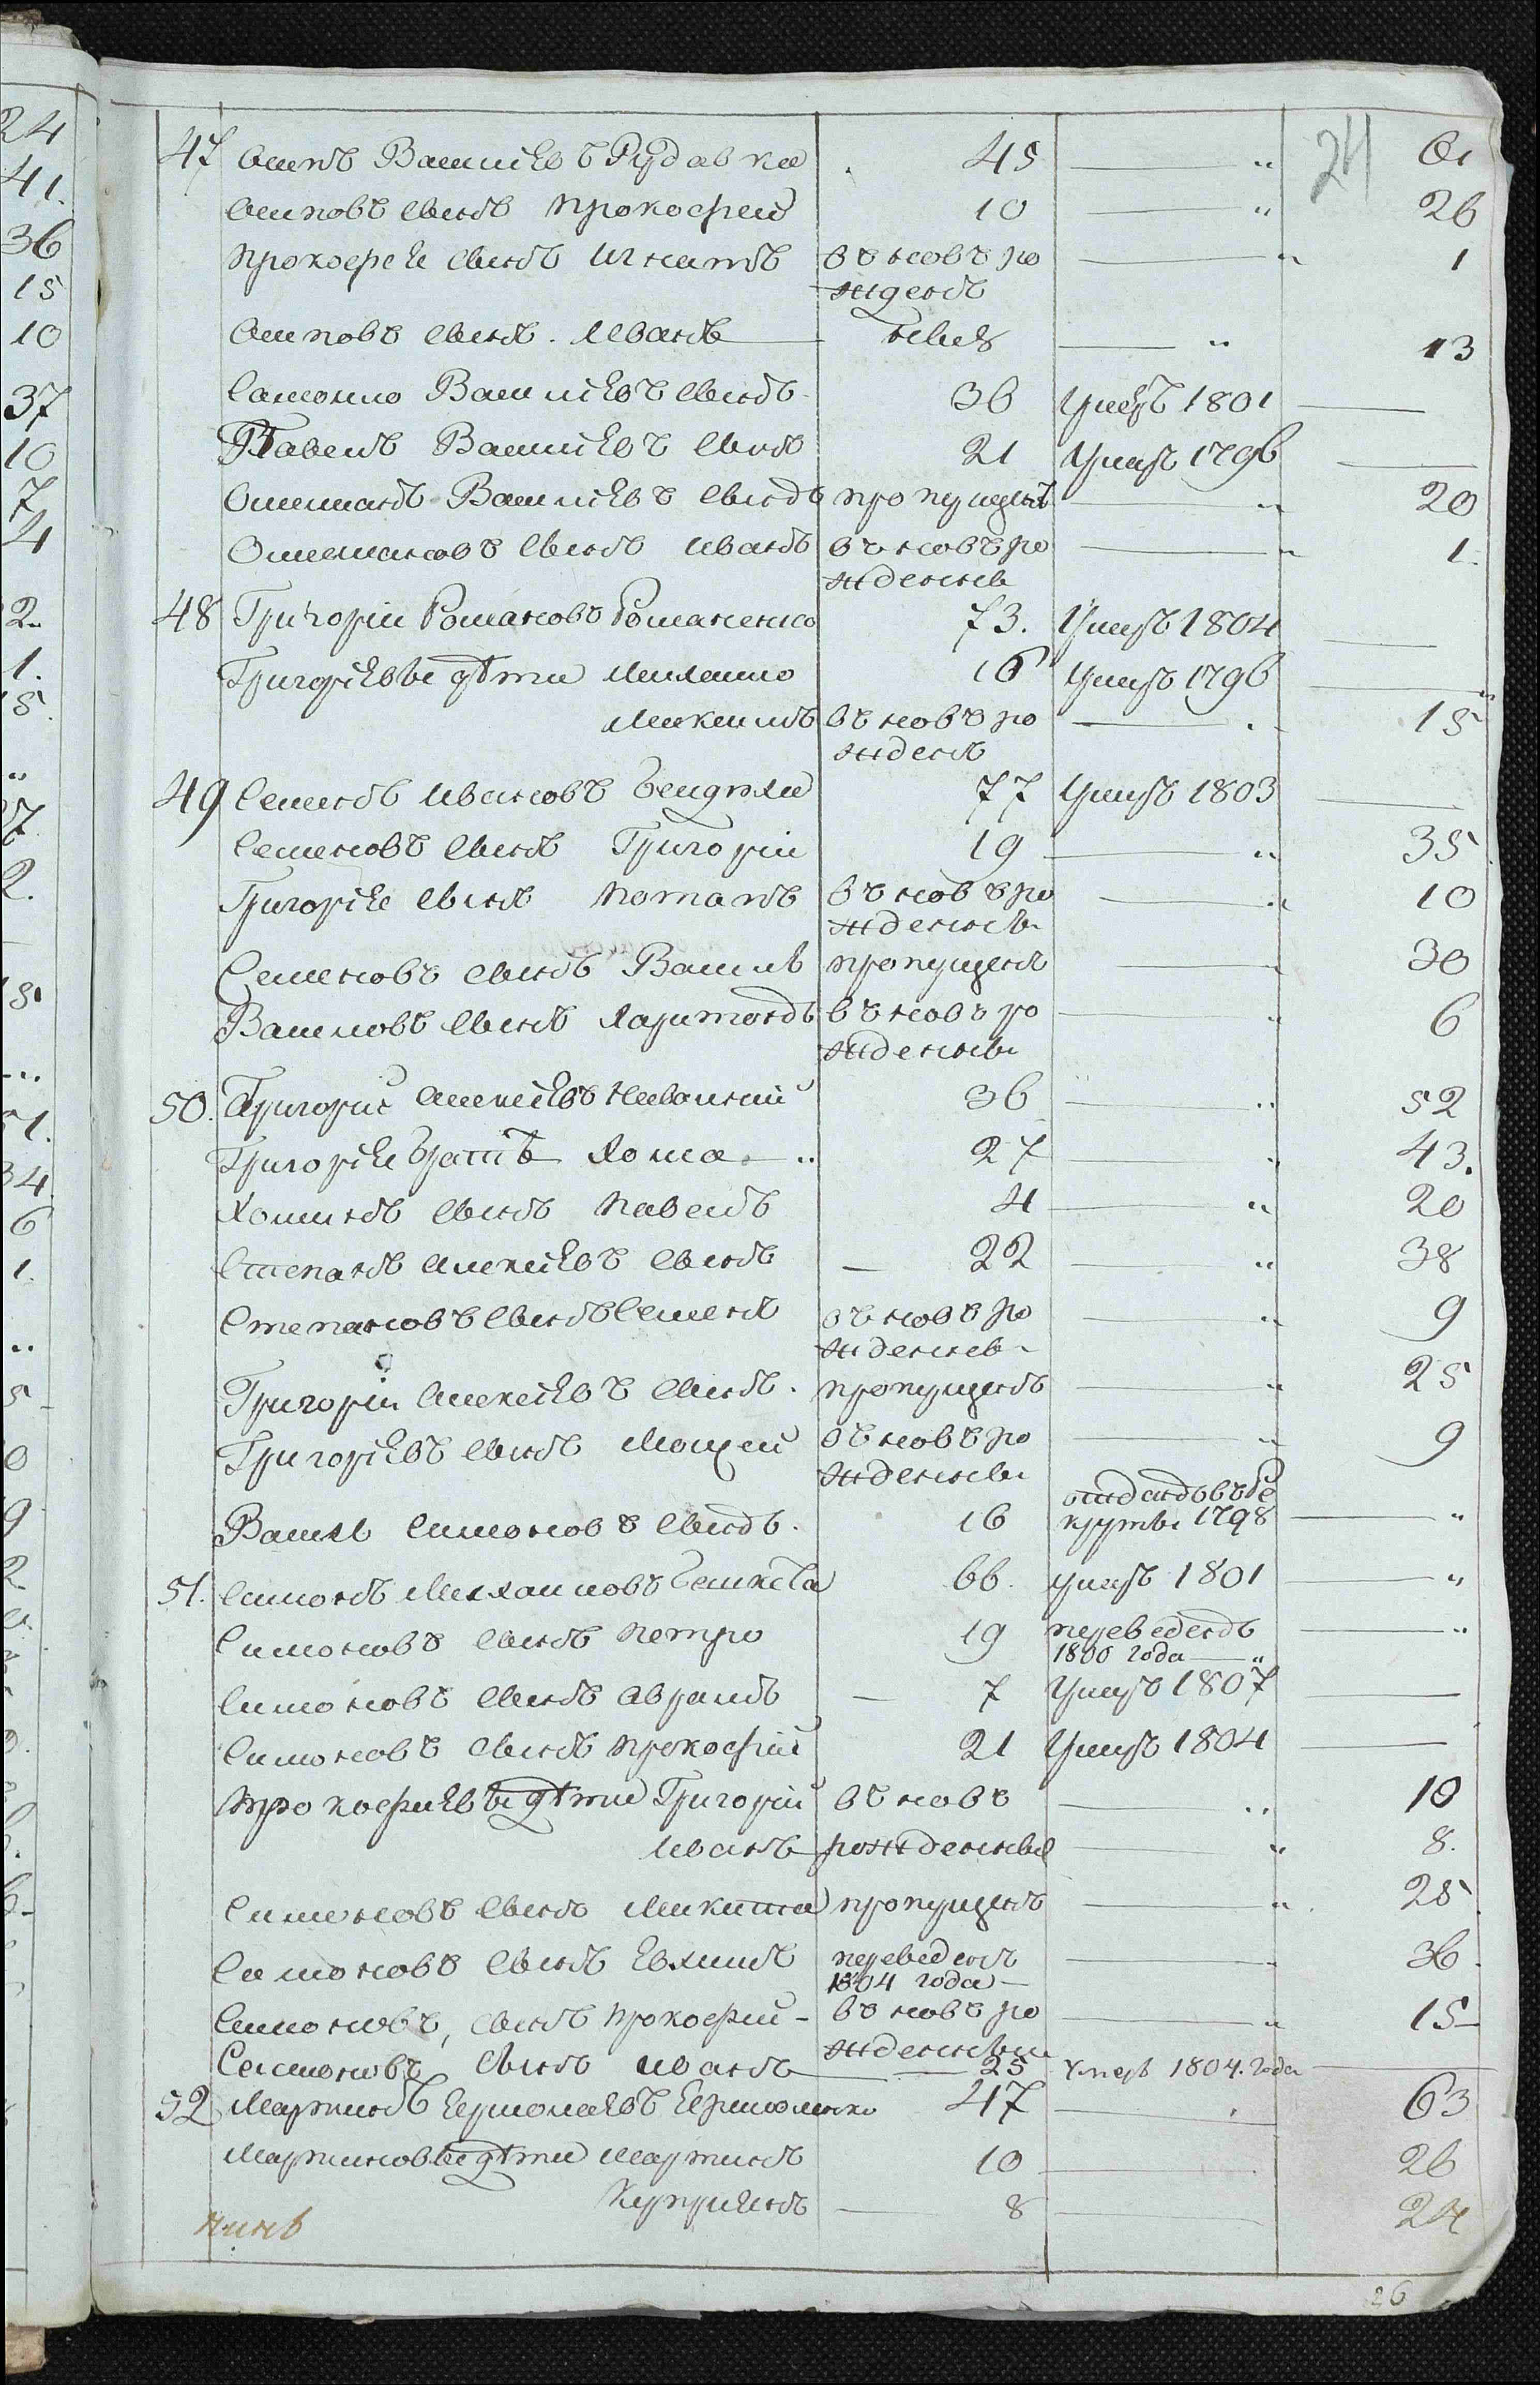 24
47 Осипъ Васильевъ Рудавка 45 — " 61
Осиповъ сынъ Прокофей 10 — " 26
Прокофея сынъ Игнатъ въ новъ ро — " 1
жденъ
Осиповъ сынъ Иванъ — " 13
Самойло Васильевъ сынъ 36 умеръ 1801 —
Павелъ Васильевъ сынъ 21 умеръ 1796 —
Омельянъ Васильевъ сынъ пропущенъ — " 20
Омельяновъ сынъ Иванъ въ новъ ро — " 1
жденные
48 Григорій Романовъ Романенко 73. Умеръ 1804 —
Григорьевы дѣти Михайло 16 умеръ 1796 — "
Микита въ новъ ро — 15
жденъ
49 Семенъ Ивановъ 77 умеръ 1803 —
Семеновъ сынъ Григорій 19 — " 35
Григорія сынъ Потапъ въ новъ ро — " 10
жденные
Семеновъ сынъ Василь пропущенъ — " 30
Васильовъ сынъ Харитонъ въ новъ ро — " 6
жденные
50. Григорій Алексѣевъ 36 — " 52
Григорія братъ Хома " 27 — " 43.
Хоминъ сынъ Павелъ 4 — " 20
Степанъ Алексѣевъ сынъ — 22 — " 38
Степановъ сынъ Семенъ въ новъ ро — " 9
жденные
Григорій Алексѣевъ сынъ пропущенъ — " 25
Григорьевъ сынъ Мойсей въ новъ ро — " 9
жденные
отданъ въ ре
Василь Симоновъ сынъ 16 круты 1798 — "
51. Симонъ Михайловъ 66. умеръ 1801 — "
Симоновъ сынъ Петро 19 переведенъ — "
1800 года — "
Симоновъ сынъ Аврамъ — 7 умеръ 1807 —
Симоновъ сынъ Прокофій 21 умеръ 1804 —
Прокофиевы дѣти Григорій въ новъ — " 10
Иванъ рожденные — " 8.
Симоновъ сынъ Микита пропущенъ — " 25
Симоновъ сынъ Евхимъ переведенъ — " 36
1804 года —
Симоновъ, сынъ Прокофій - въ новъ ро — " 15
жденные
Симоновъ сынъ Иванъ — 25 умеръ 1804. года —
52 Мартинъ Ермолаевъ Ермоленко 47 — 63
Мартиновы дѣти Мартинъ 10 — 26
Куприянъ — 8 — 24
26